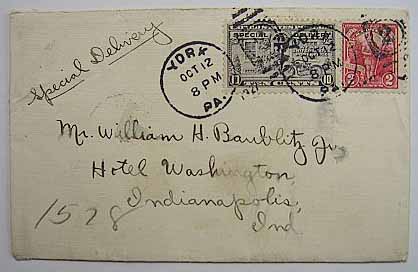 Special Delivery
YORK
OCT 12
8 PM
PA.
SPECIAL DELIVERY
10 10
2 2
Mr. William H. Baublitz, Jr.
Hotel Washington,
Indianapolis,
Ind.
1528